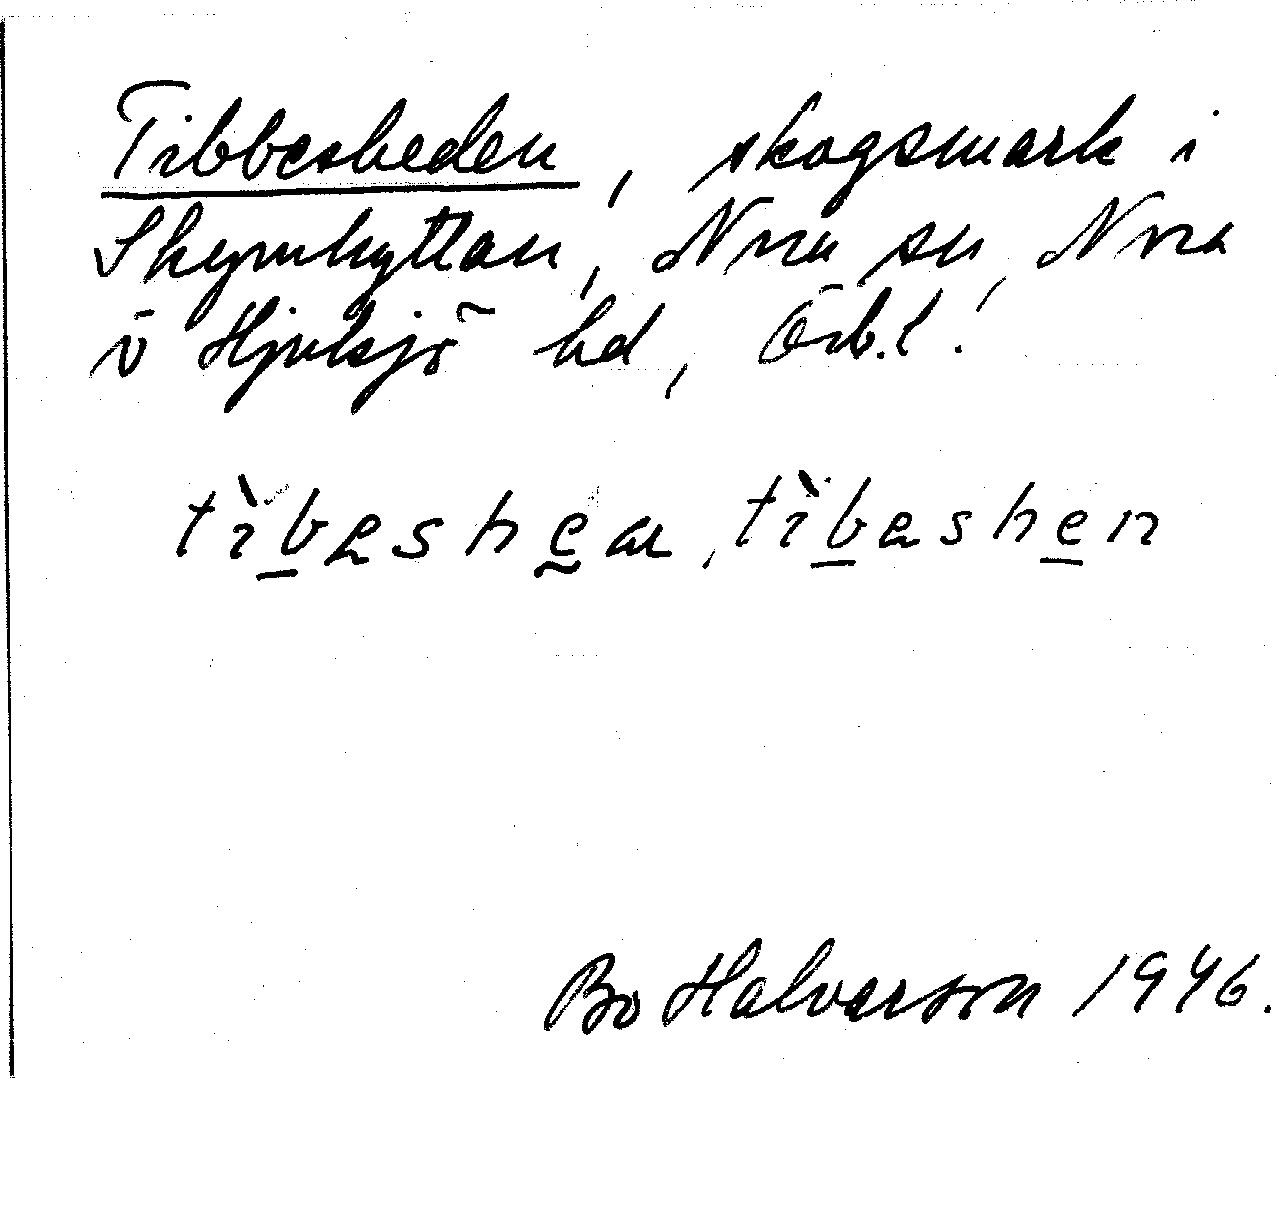 Tibbesheden, skogsmark i
Skrymhyttan, Nora sn, Nora
o Hjulsjö hd, Örb.l.
tìbeshean, tìbeshen
Bo Halvarson 1946.